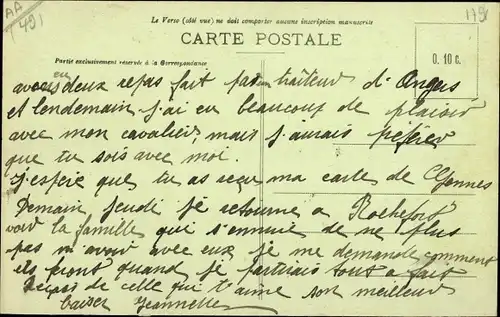 AA
T491
1791
Le Verso (côté vue) ne doit comporter aucune inscription manuscrite
CARTE POSTALE
Partie exclusivement réservée à la Correspondance
0.10 c.
en
avons deux repas fait par un traiteur d'Angers
et lendemain j'ai eu beaucoup de plaisir
avec mon cavalier, mais j'aurais préférer
que tu sois avec moi.
J'espère que tu as reçu ma carte de Gennes
Demain jeudi je retourne a Rochefort
voir la famille qui s'ennuie de ne plus
pas m'avoir avec eux je me demande comment
ils feront quand je partirais tout a fait
Reçois de celle qui t'aime son meilleur
baiser Jeannette